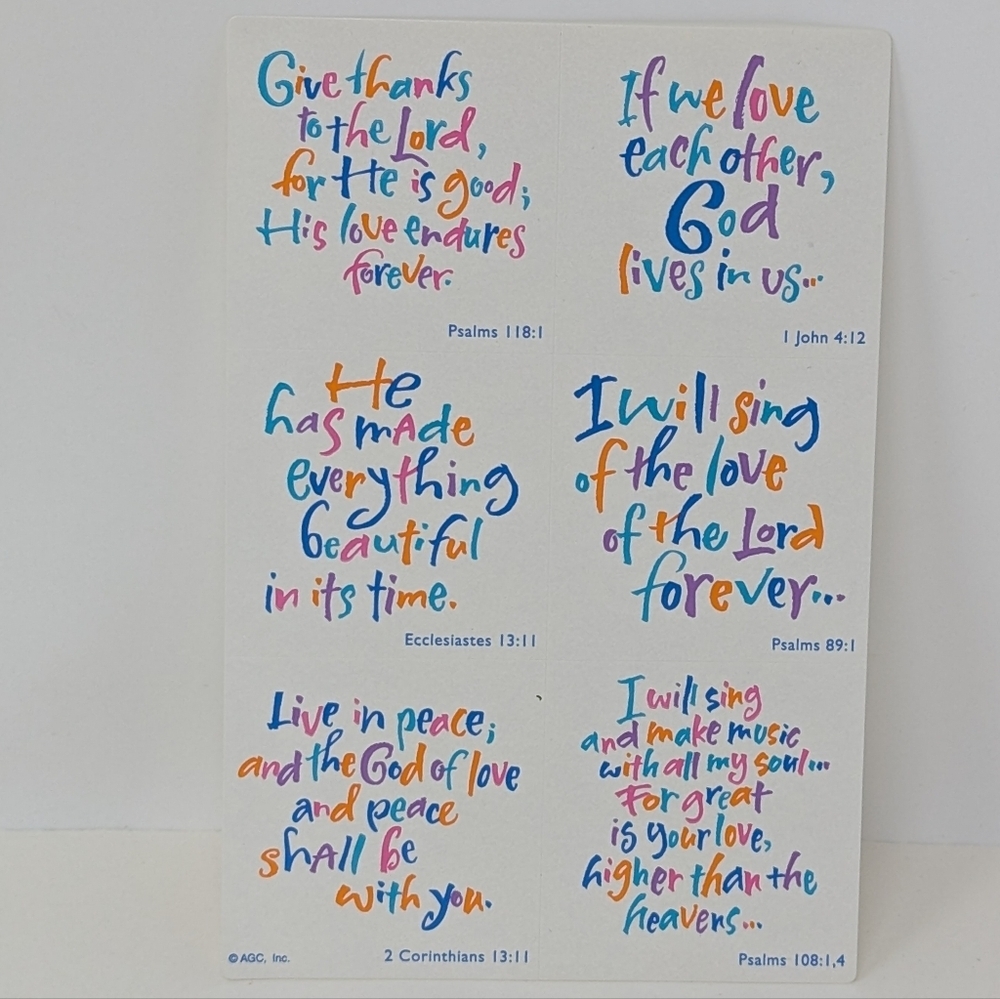 Give thanks
to the Lord,
for He is good;
His love endures
forever.
Psalms 118:1
If we love
each other,
God
lives in us...
1 John 4:12
He
has made
everything
beautiful
in its time.
Ecclesiastes 13:11
I will sing
of the love
of the Lord
forever...
Psalms 89:1
Live in peace;
and the God of love
and peace
shall be
with you.
2 Corinthians 13:11
© AGC, Inc.
I will sing
and make music
with all my soul...
For great
is your love,
higher than the
heavens...
Psalms 108:1,4